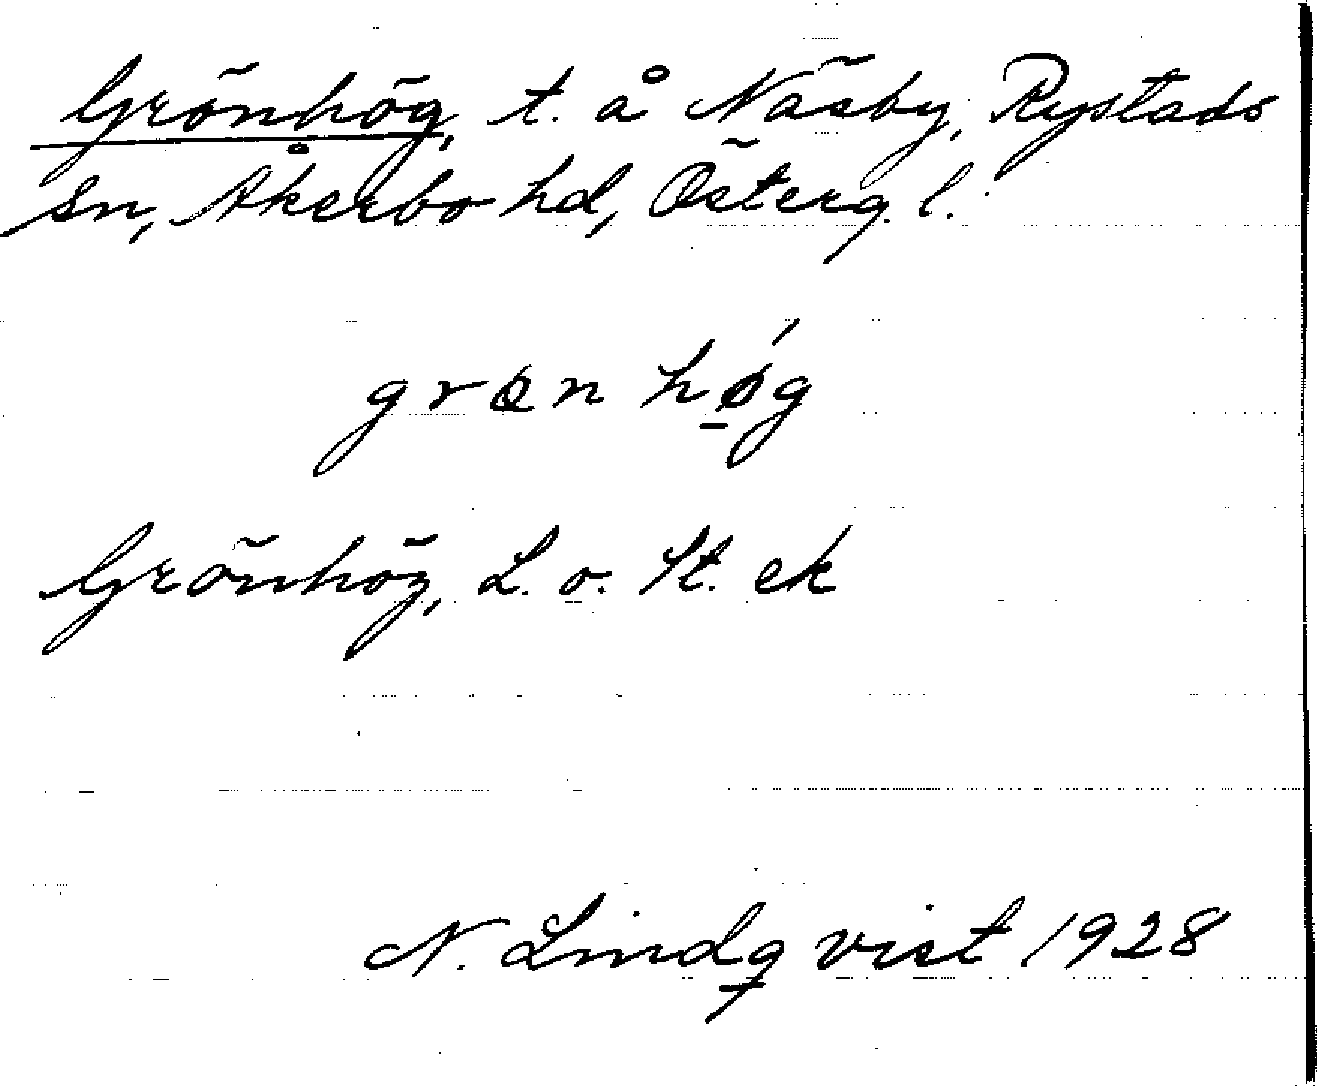 Grönhög, t. å Näsby, Rystads
sn, Åkerbo hd, Österg. l.
grøn høg
Grönhög, L. o. St. ek
N. Lindqvist 1928